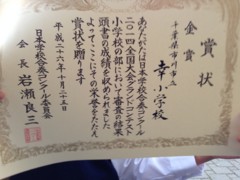 賞状
金賞
千葉県市川市立
幸小学校
あなたがたは日本学校合奏コンクール
二〇一四全国大会グランドコンテスト
小学校の部において審査の結果
頭書の成績を収められました
よってここにその栄誉をたたえ
賞状を贈ります
平成二十六年十月二十五日
日本学校合奏コンクール委員会
会長 岩瀬良三